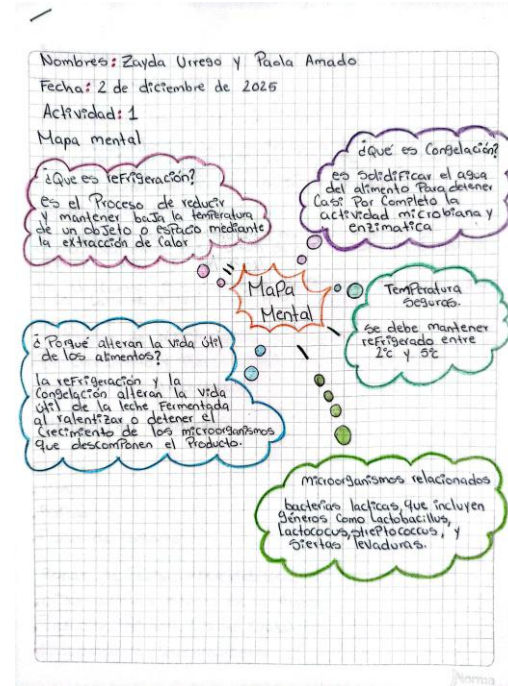 Nombres: Zayda Urrego y Paola Amado
Fecha: 2 de diciembre de 2025
Actividad: 1
Mapa mental
¿Que es refrigeración?
es el Proceso de reducir
y mantener baja la temperatura
de un objeto o espacio mediante
la extracción de Calor
¿Qué es Congelación?
es Solidificar el agua
del alimento Para detener
Casi Por Completo la
actividad microbiana y
enzimatica
MaPa
Mental
TemPeratura
Seguras.
Se debe mantener
refrigerado entre
2°c y 5°c
¿Porqué alteran la vida útil
de los alimentos?
la refrigeración y la
Congelación alteran la vida
útil de la leche, Fermentada
al ralentizar o detener el
Crecimiento de los microorganismos
que descomponen el Producto.
microorganismos relacionados
bacterias lacticas, que incluyen
géneros Como Lactobacillus,
Lactococus, strePtococcus, y
Siertas levaduras.
Norma